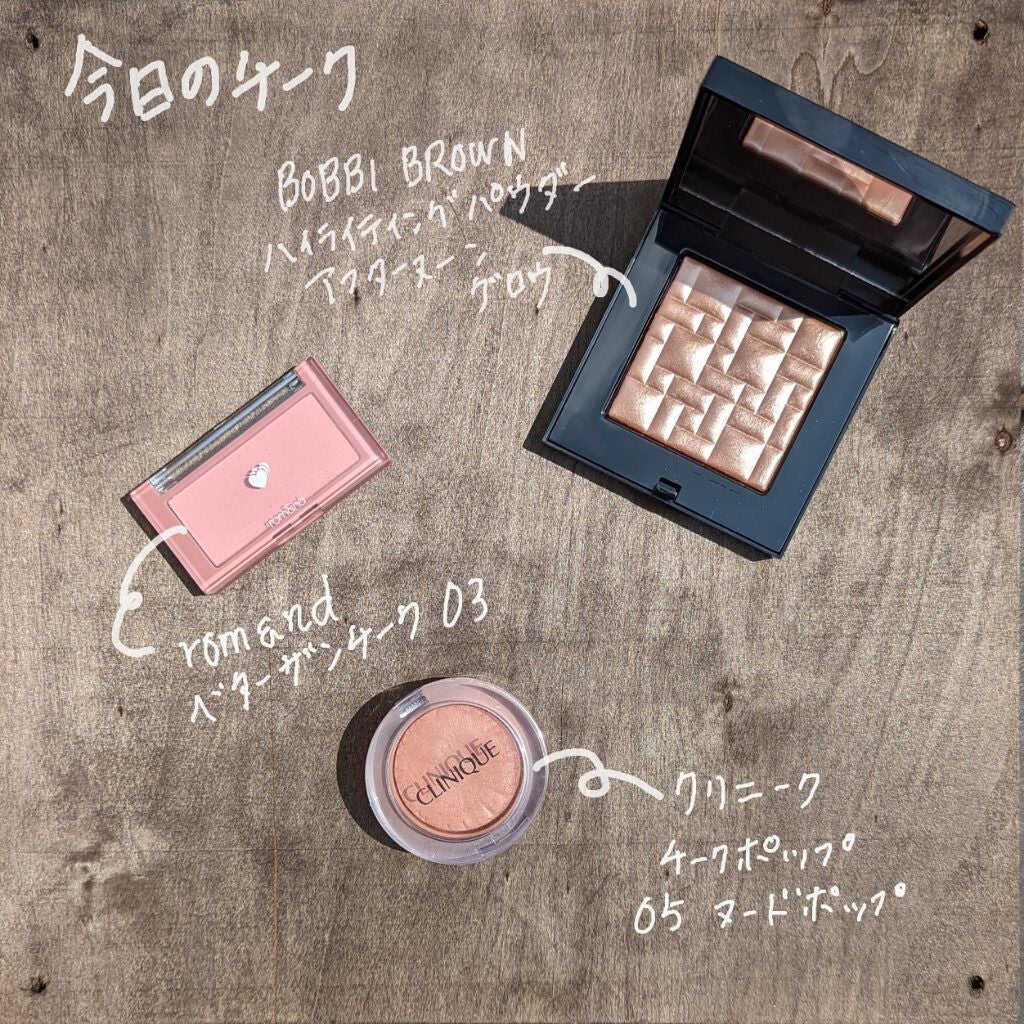 今日のチーク
BOBBI BROWN
ハイライティングパウダー
アフターヌーン
グロウ
rom&nd
rom&nd
ベターザンチーク 03
CLINIQUE
クリニーク
チークポップ
05 ヌードポップ